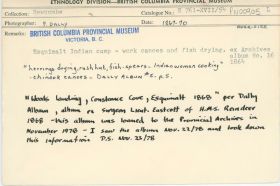 ETHNOLOGY DIVISION—BRITISH COLUMBIA PROVINCIAL MUSEUM
BRITISH COLUMBIA PROVINCIAL MUSEUM
VICTORIA, B. C.
Catalogue No.
Photographer: F. Dally
Date: 1867-70
Esquimalt Indian camp - work canoes and fish drying. ex Archives
album No. 16
1864
"herrings drying, rush hut, fish-spears - Indian women cooking
- chinook canoes - DALLY ALBUM #5, p.5.
"Woods landing, Constance Cove, Esquimalt 1868" per Dally
Album, album ex Surgeon Lieut. Eastcott of H.M.S. Reindeer
1868 - this album was loaned to the Provincial Archives in
November 1978 - I saw the album Nov. 22/78 and took down
this information D.S. Nov. 23/78